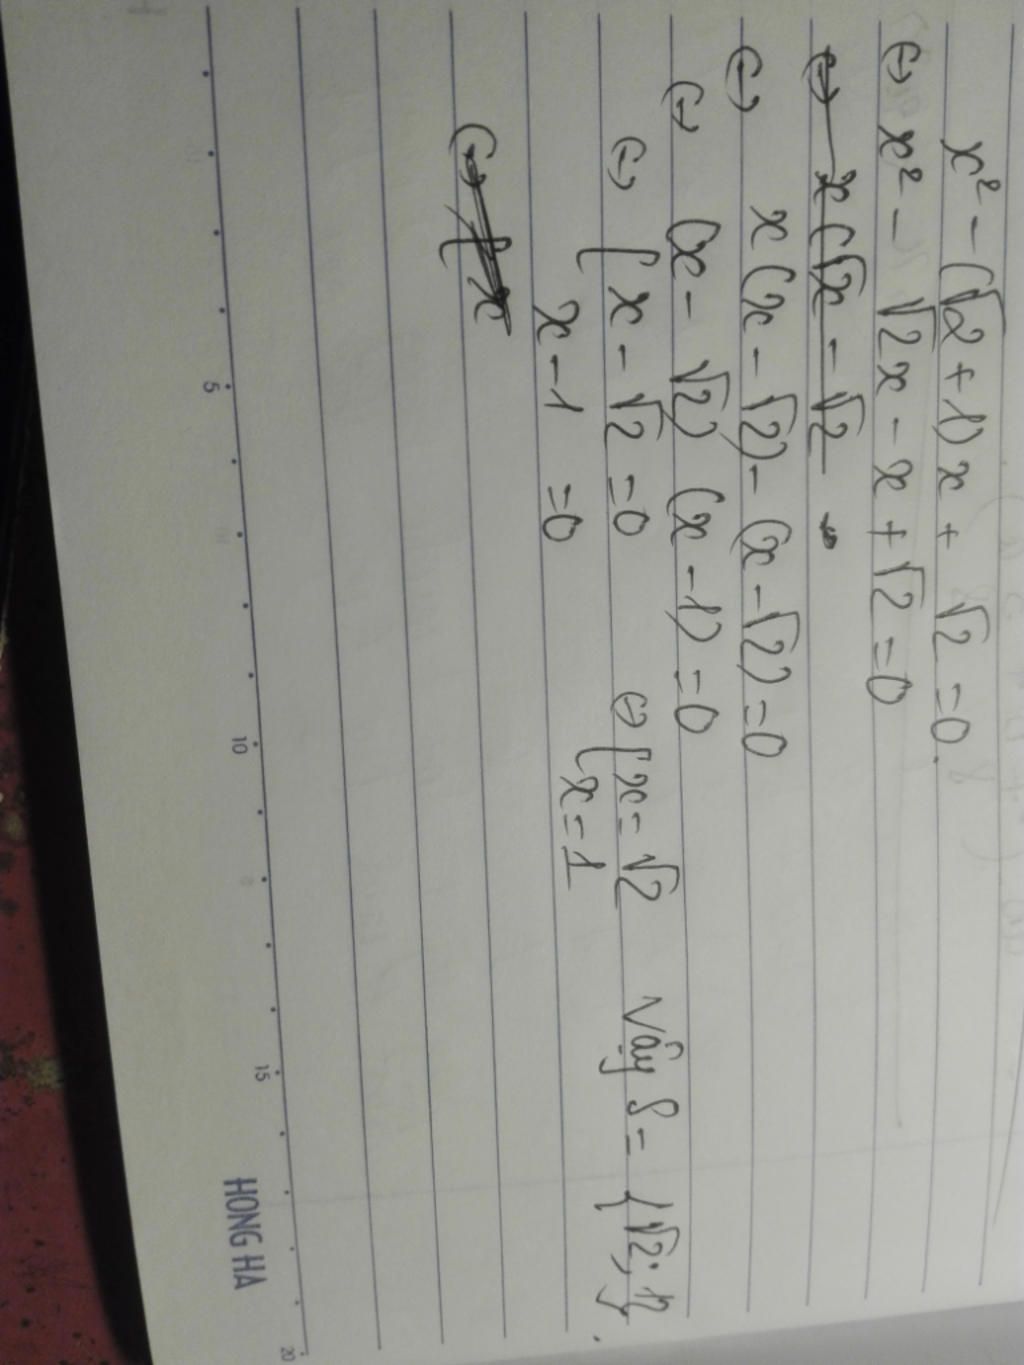 x² - (√2 + 1)x + √2 = 0.
(-) x² - √2x - x + √2 = 0
(-) x(√x - √2
(-) x(x - √2) - (x - √2) = 0
(-) (x - √2) (x - 1) = 0
(-) [ x - √2 = 0 (-) [ x = √2 Vậy S = {√2; 1}.
x - 1 = 0 x = 1
(-) [ x
5 10 15 20
HONG HA